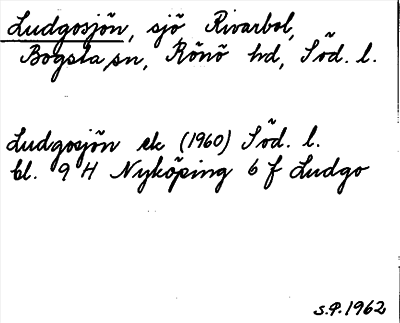 Ludgosjön, sjö, Rivarbol,
Bogsta sn, Rönö hd, Söd. l.
Ludgosjön ek (1960) Söd. l.
bl. 9 H Nyköping 6 f Ludgo
S.P. 1962